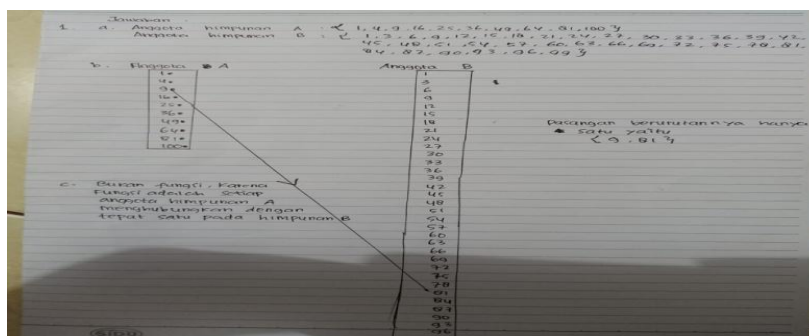 Jawaban
1. a. Anggota himpunan A : { 1, 4, 9, 16, 25, 36, 49, 64, 81, 100 }
Anggota himpunan B : { 1, 3, 6, 9, 12, 15, 18, 21, 24, 27, 30, 33, 36, 39, 42,
45, 48, 51, 54, 57, 60, 63, 66, 69, 72, 75, 78, 81,
84, 87, 90, 93, 96, 99 }
b. Anggota A
1
4
9
16
25
36
49
64
81
100
Anggota B
1
3
6
9
12
15
18
21
24
27
30
33
36
39
42
45
48
51
54
57
60
63
66
69
72
75
78
81
84
87
90
93
96
Pasangan berurutannya hanya
satu yaitu
{ 9, 81 }
c. Bukan fungsi. Karena
fungsi adalah setiap
anggota himpunan A
menghubungkan dengan
tepat satu pada himpunan B
SIDU